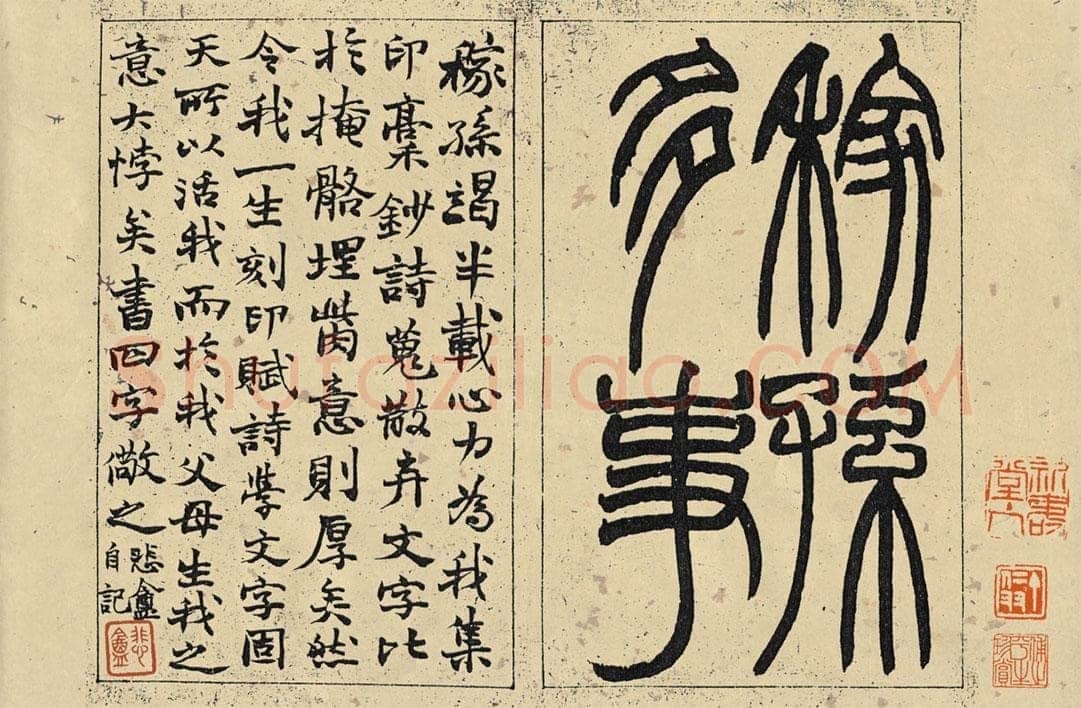 稼孫
多事
稼孫竭半載心力為我集
印稾鈔詩蒐散弃文字比
於掩骼埋胔意則厚矣然
令我一生刻印賦詩學文字固
天所以活我而於我父母生我之
意大悖矣書四字儆之
悲盦
自記
悲盦
Shufaziliao.COM